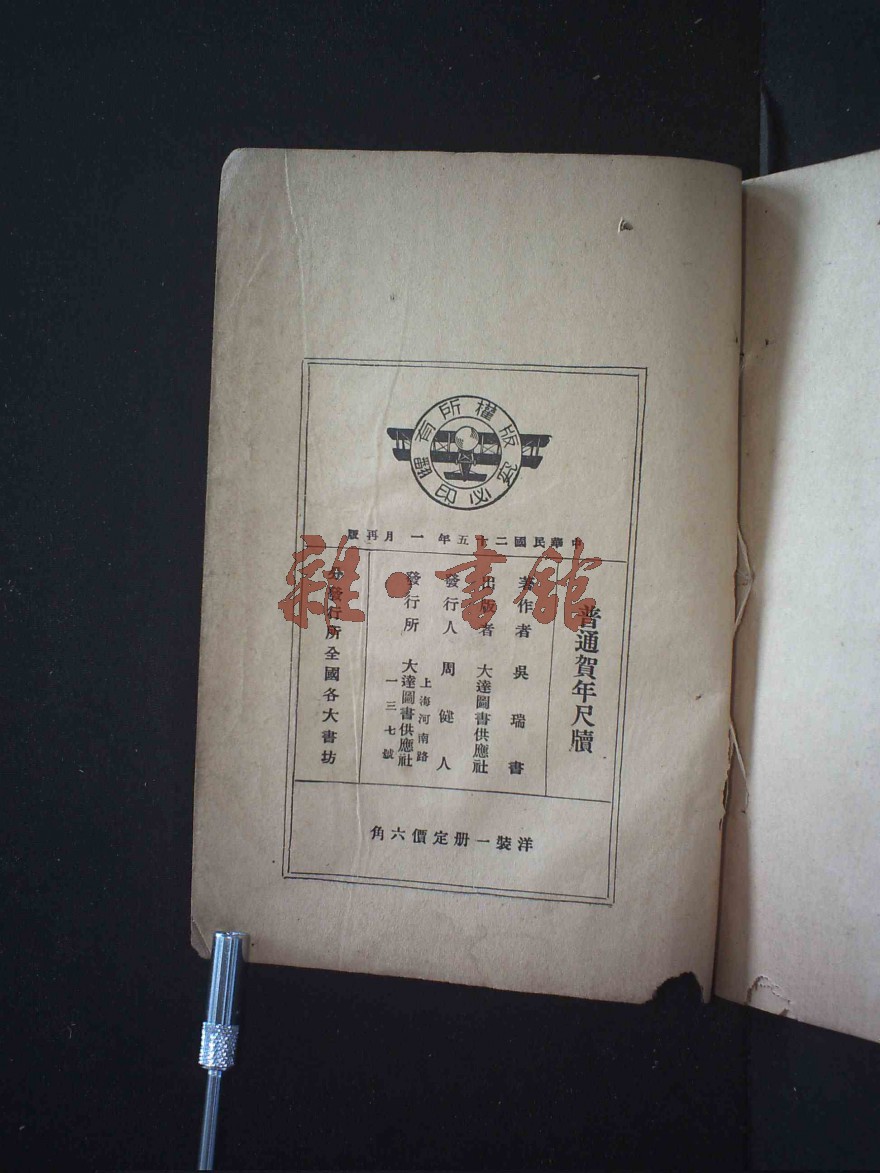 版權所有
翻印必究
中華民國二十五年一月再版
普通賀年尺牘
著作者 吳瑞書
出版者 大達圖書供應社
發行人 周健人
發行所 上海河南路
大達圖書供應社
一三七號
分發行所全國各大書坊
洋裝一册定價六角
雜·書館